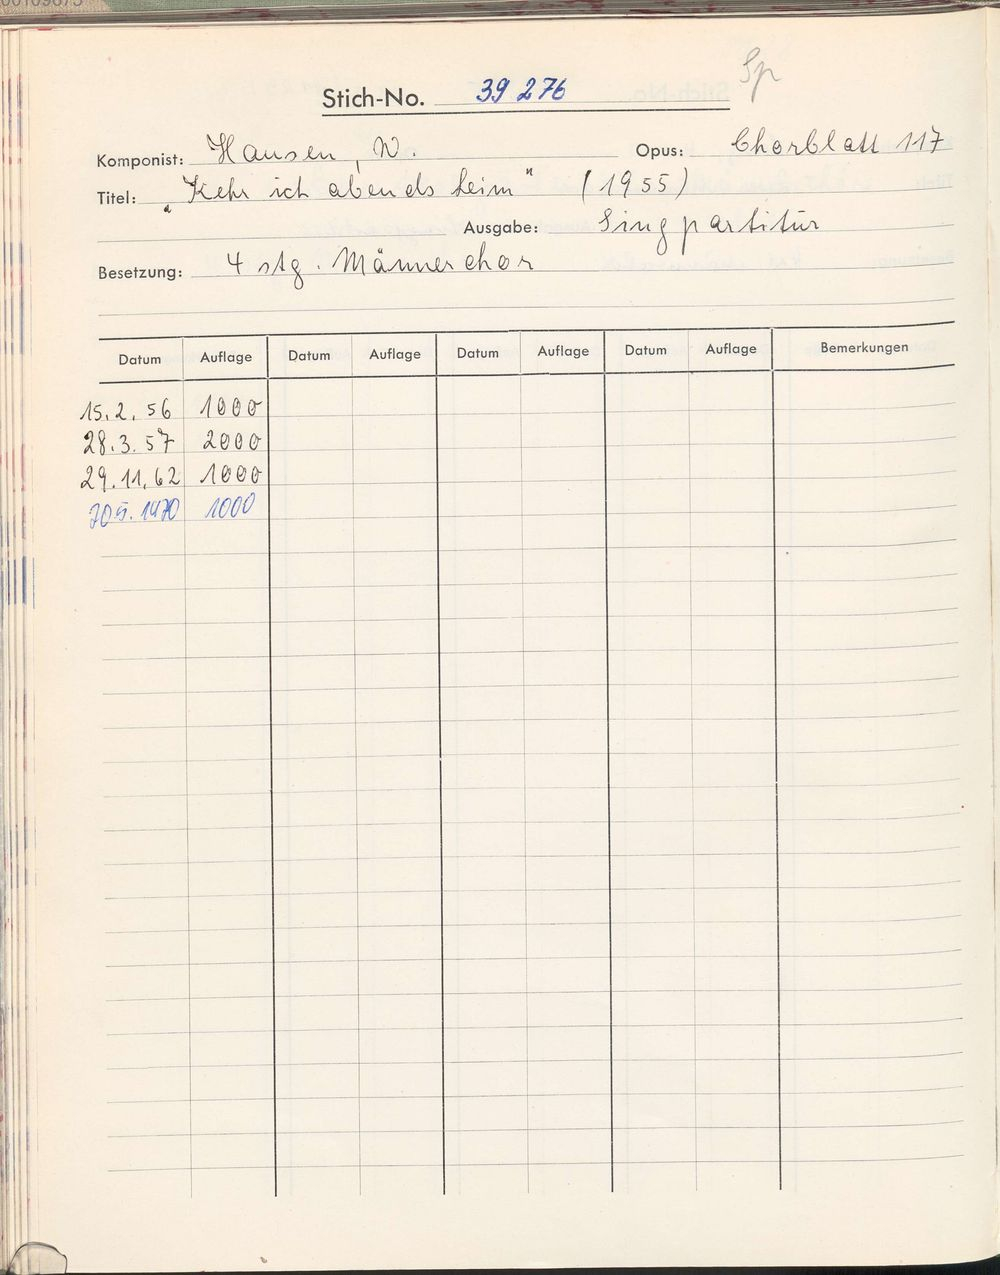 Sp
Stich-No. 39 276
Komponist: Hansen, W. Opus: Chorblatt 117
Titel: „Kehr ich abends heim" (1955)
Ausgabe: Singpartitur
Besetzung: 4 stg. Männerchor
Datum Auflage Datum Auflage Datum Auflage Datum Auflage Bemerkungen
15.2.56 1000
28.3.57 2000
29.11.62 1000
1970 1000